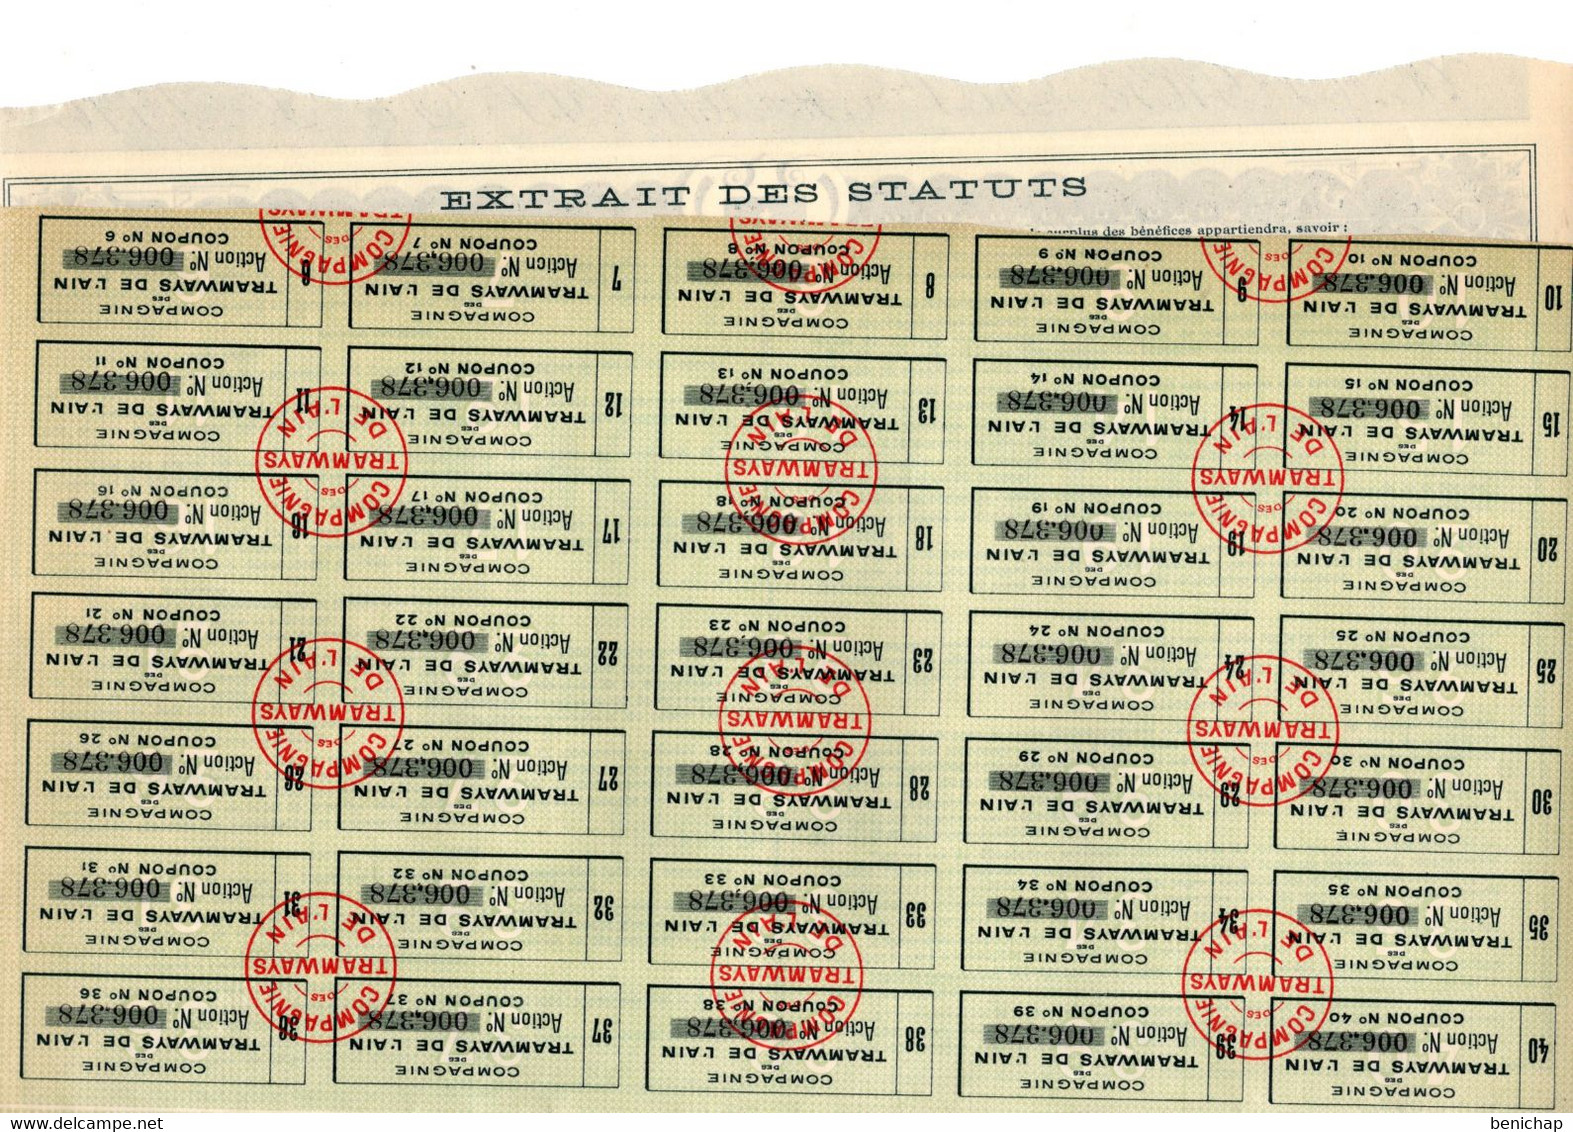 EXTRAIT DES STATUTS
surplus des bénéfices appartiendra, savoir :
COMPAGNIE
DES
TRAMWAYS DE L'AIN
6 Action N°. 006,378
COUPON N° 6
COMPAGNIE
DES
TRAMWAYS DE L'AIN
7 Action N°. 006,378
COUPON N° 7
COMPAGNIE
DES
TRAMWAYS DE L'AIN
8 Action N°. 006,378
COUPON N° 8
COMPAGNIE
DES
TRAMWAYS DE L'AIN
9 Action N°. 006,378
COUPON N° 9
COMPAGNIE
DES
TRAMWAYS DE L'AIN
10 Action N°. 006,378
COUPON N° 10
COMPAGNIE
DES
TRAMWAYS DE L'AIN
11 Action N°. 006,378
COUPON N° 11
COMPAGNIE
DES
TRAMWAYS DE L'AIN
12 Action N°. 006,378
COUPON N° 12
COMPAGNIE
DES
TRAMWAYS DE L'AIN
13 Action N°. 006,378
COUPON N° 13
COMPAGNIE
DES
TRAMWAYS DE L'AIN
14 Action N°. 006,378
COUPON N° 14
COMPAGNIE
DES
TRAMWAYS DE L'AIN
15 Action N°. 006,378
COUPON N° 15
COMPAGNIE
DES
TRAMWAYS DE L'AIN
16 Action N°. 006,378
COUPON N° 16
COMPAGNIE
DES
TRAMWAYS DE L'AIN
17 Action N°. 006,378
COUPON N° 17
COMPAGNIE
DES
TRAMWAYS DE L'AIN
18 Action N°. 006,378
COUPON N° 18
COMPAGNIE
DES
TRAMWAYS DE L'AIN
19 Action N°. 006,378
COUPON N° 19
COMPAGNIE
DES
TRAMWAYS DE L'AIN
20 Action N°. 006,378
COUPON N° 20
COMPAGNIE
DES
TRAMWAYS DE L'AIN
21 Action N°. 006,378
COUPON N° 21
COMPAGNIE
DES
TRAMWAYS DE L'AIN
22 Action N°. 006,378
COUPON N° 22
COMPAGNIE
DES
TRAMWAYS DE L'AIN
23 Action N°. 006,378
COUPON N° 23
COMPAGNIE
DES
TRAMWAYS DE L'AIN
24 Action N°. 006,378
COUPON N° 24
COMPAGNIE
DES
TRAMWAYS DE L'AIN
25 Action N°. 006,378
COUPON N° 25
COMPAGNIE
DES
TRAMWAYS DE L'AIN
26 Action N°. 006,378
COUPON N° 26
COMPAGNIE
DES
TRAMWAYS DE L'AIN
27 Action N°. 006,378
COUPON N° 27
COMPAGNIE
DES
TRAMWAYS DE L'AIN
28 Action N°. 006,378
COUPON N° 28
COMPAGNIE
DES
TRAMWAYS DE L'AIN
29 Action N°. 006,378
COUPON N° 29
COMPAGNIE
DES
TRAMWAYS DE L'AIN
30 Action N°. 006,378
COUPON N° 30
COMPAGNIE
DES
TRAMWAYS DE L'AIN
31 Action N°. 006,378
COUPON N° 31
COMPAGNIE
DES
TRAMWAYS DE L'AIN
32 Action N°. 006,378
COUPON N° 32
COMPAGNIE
DES
TRAMWAYS DE L'AIN
33 Action N°. 006,378
COUPON N° 33
COMPAGNIE
DES
TRAMWAYS DE L'AIN
34 Action N°. 006,378
COUPON N° 34
COMPAGNIE
DES
TRAMWAYS DE L'AIN
35 Action N°. 006,378
COUPON N° 35
COMPAGNIE
DES
TRAMWAYS DE L'AIN
36 Action N°. 006,378
COUPON N° 36
COMPAGNIE
DES
TRAMWAYS DE L'AIN
37 Action N°. 006,378
COUPON N° 37
COMPAGNIE
DES
TRAMWAYS DE L'AIN
38 Action N°. 006,378
COUPON N° 38
COMPAGNIE
DES
TRAMWAYS DE L'AIN
39 Action N°. 006,378
COUPON N° 39
COMPAGNIE
DES
TRAMWAYS DE L'AIN
40 Action N°. 006,378
COUPON N° 40
COMPAGNIE DES TRAMWAYS
COMPAGNIE DES TRAMWAYS
COMPAGNIE DES
COMPAGNIE DES TRAMWAYS DE L'AIN
COMPAGNIE DES TRAMWAYS DE L'AIN
COMPAGNIE DES TRAMWAYS DE L'AIN
COMPAGNIE DES TRAMWAYS DE L'AIN
COMPAGNIE DES TRAMWAYS DE L'AIN
COMPAGNIE DES TRAMWAYS DE L'AIN
COMPAGNIE DES TRAMWAYS DE L'AIN
COMPAGNIE DES TRAMWAYS DE L'AIN
COMPAGNIE DES TRAMWAYS DE L'AIN
delcampe.net
benichap